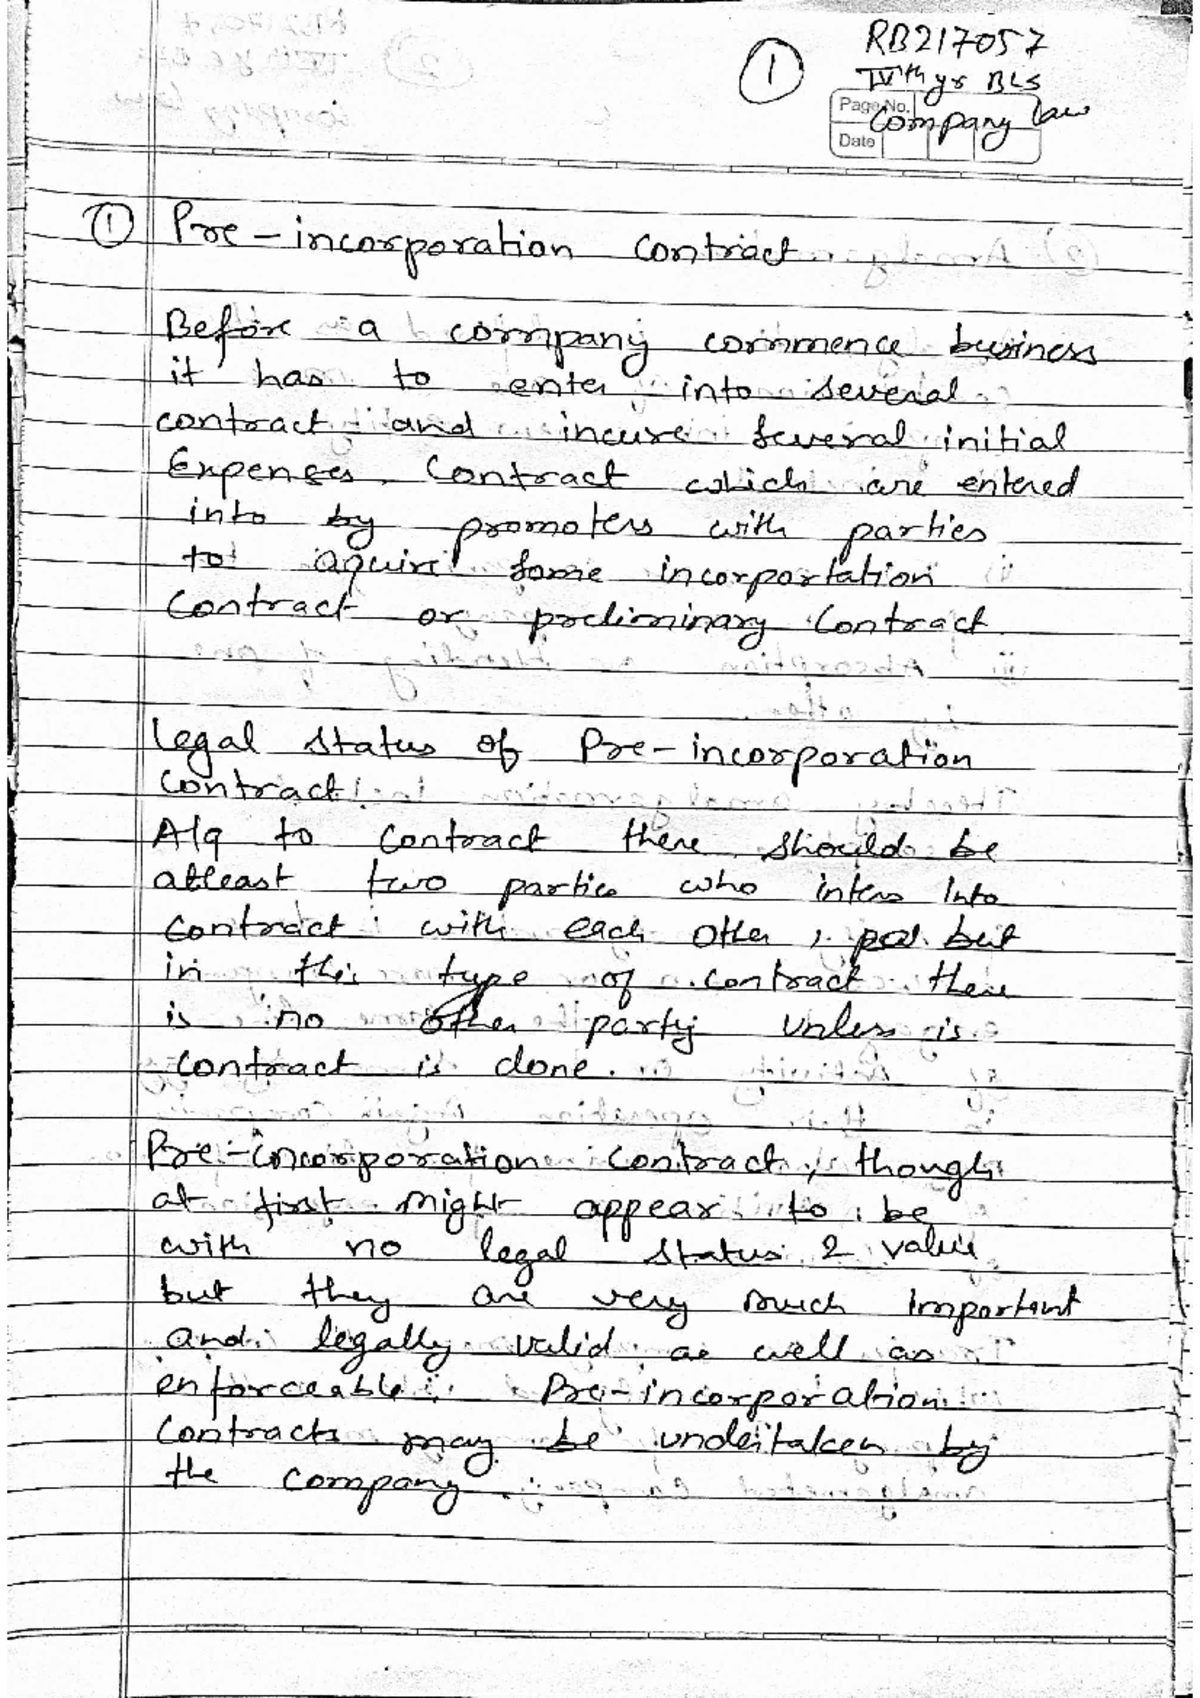 RB217057
1
IVth yr BLS
Page No.
Company law
Date
1 Pre-incorporation contract
Before a company commence business
it has to enter into several
contract and incure several initial
Expenses. Contract which are entered
into by promoters with parties
to aquire some incorportation
Contract or preliminary Contract
Legal status of Pre-incorporation
contract:
A/q to contract there should be
atleast two parties who inters into
contract with each other, but
in this type of contract there
is no other party unless is
contract is done.
Pre-incorporation contract, though
at first might appear to be
with no legal status & value
but they are very much important
and legally valid as well as
enforceable. Pre-incorporation
Contracts may be undertaken by
the company.